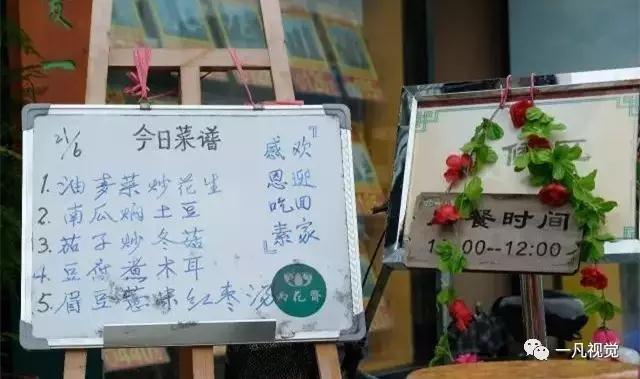 21/6 今日菜谱
1. 油麦菜炒花生
2. 南瓜焖土豆
3. 茄子炒冬菇
4. 豆腐煮木耳
5. 眉豆薏味红枣汤
『欢迎回家
感恩吃素』
雨花斋
餐时间
00--12:00
一凡视觉